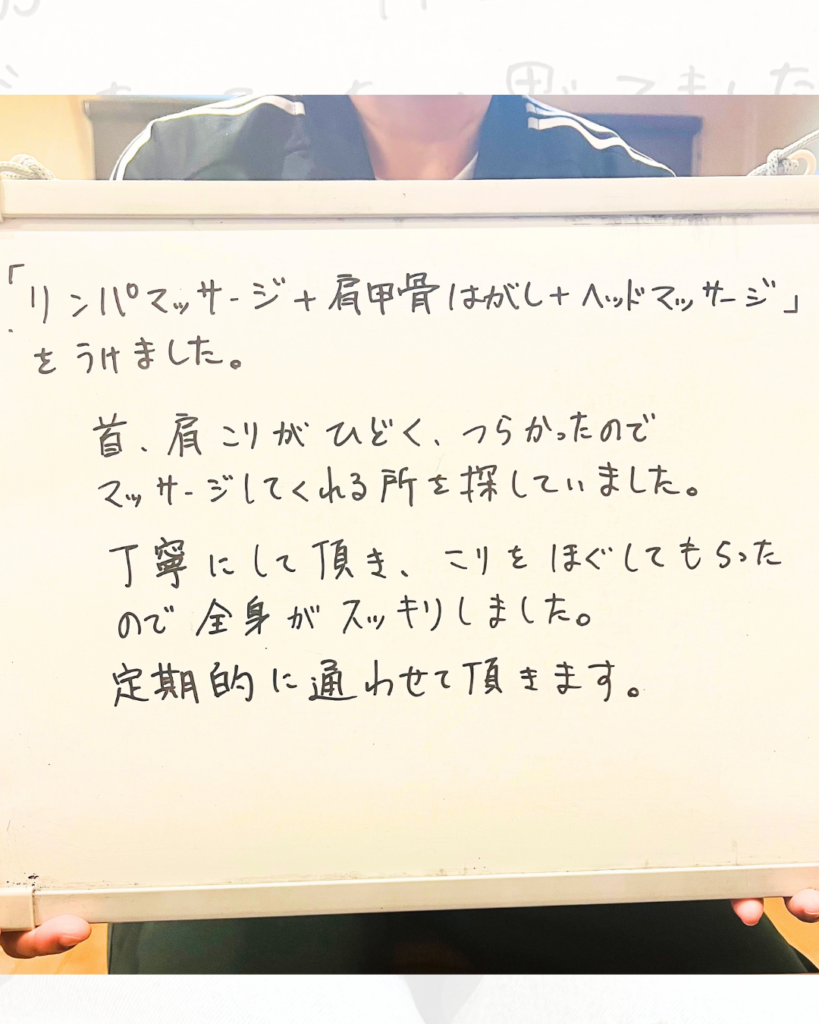 思ってました
「リンパマッサージ+肩甲骨はがし+ヘッドマッサージ」
をうけました。
首、肩こりがひどく、つらかったので
マッサージしてくれる所を探していました。
丁寧にして頂き、こりをほぐしてもらった
ので全身がスッキリしました。
定期的に通わせて頂きます。